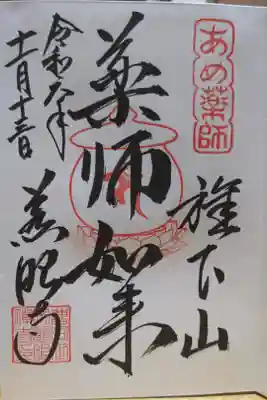 あめ薬師
下山
薬師如来
令和六年
十一月十三日
慈眼寺